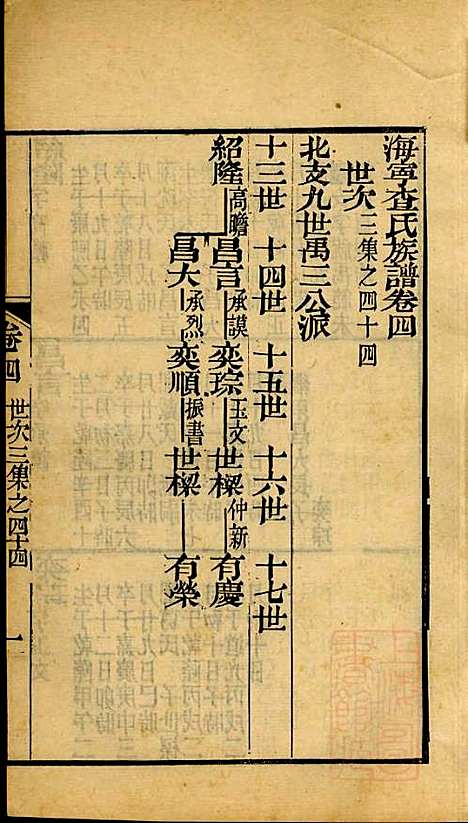 海寧查氏族譜卷四
世次三集之四十四
北支九世禺三公派
十三世 十四世 十五世 十六世 十七世
紹隆高瞻 昌言承謨 奕琮玉文 世樑仲新 有慶
昌大承烈 奕順振書 世樑 有榮
卷四 世次三集之四十四 一